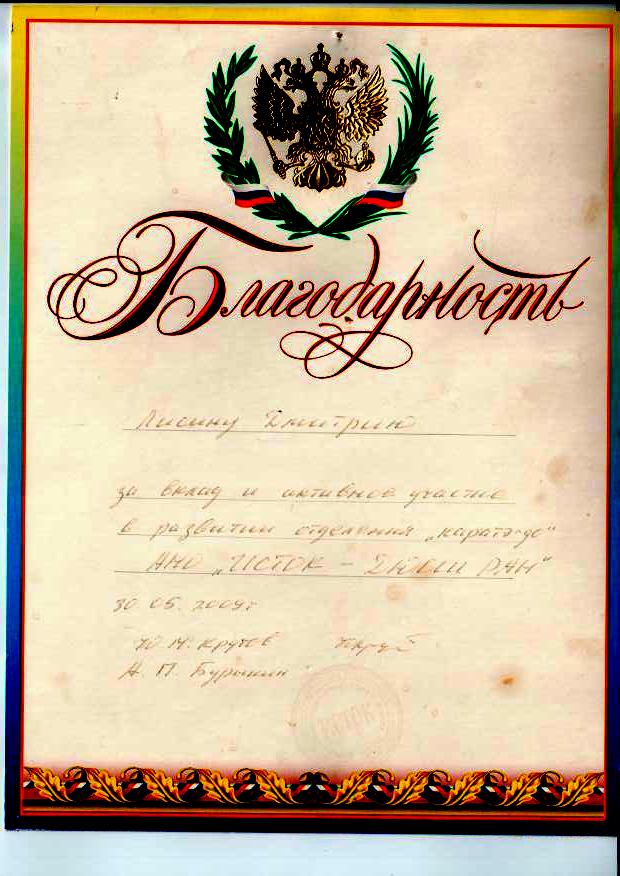 Благодарность
Лисину Дмитрию
за вклад и активное участие
в развитии отделения „каратэ-до“
АНО „ИСТОК – ДЮСШ РАН“
30.05.2009г
Ю.М. Крутов
А.П. Бурыкин
ИСТОК